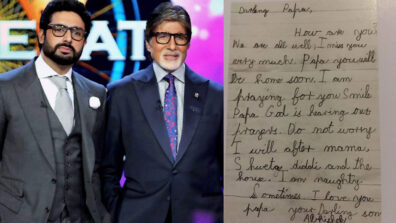 EAT
Darling Papa,
How are you?
We are all well. I miss you
very much. Papa you will
be home soon. I am
praying for you Smile
Papa God is hearing our
prayers. Do not worry
I well after mama,
Shweta diddi and the
house. I am naughty
Sometimes. I love you
papa your Darling son
Abhishek